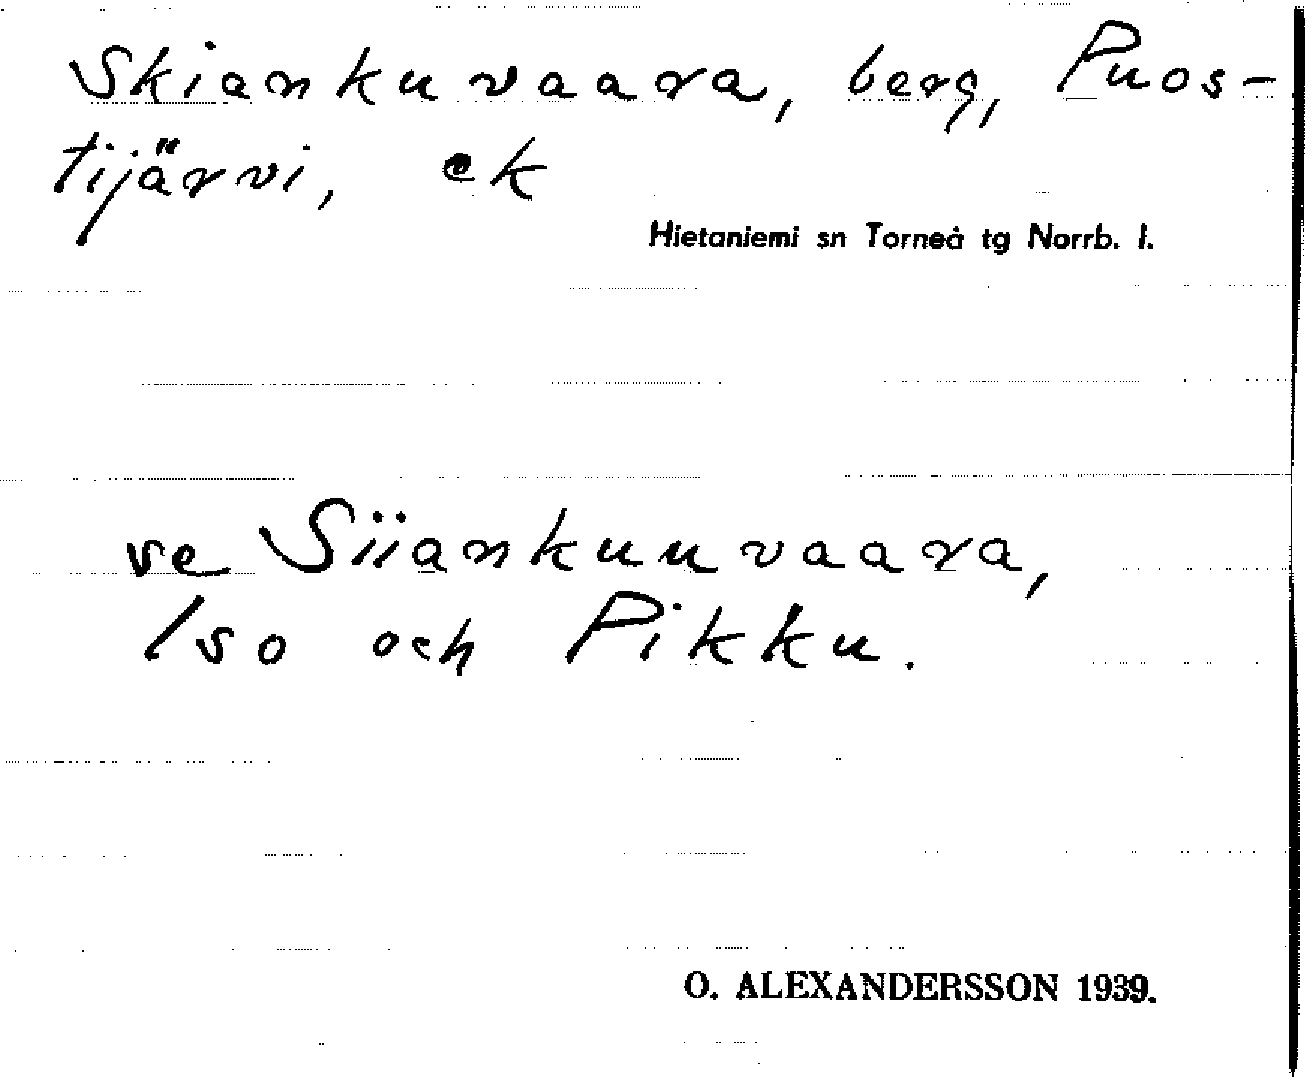 Skiankuvaara, berg, Puos-
tijärvi, ek
Hietaniemi sn Torneå tg Norrb. l.
se Siiankuuvaara,
Iso och Pikku.
O. ALEXANDERSSON 1939.